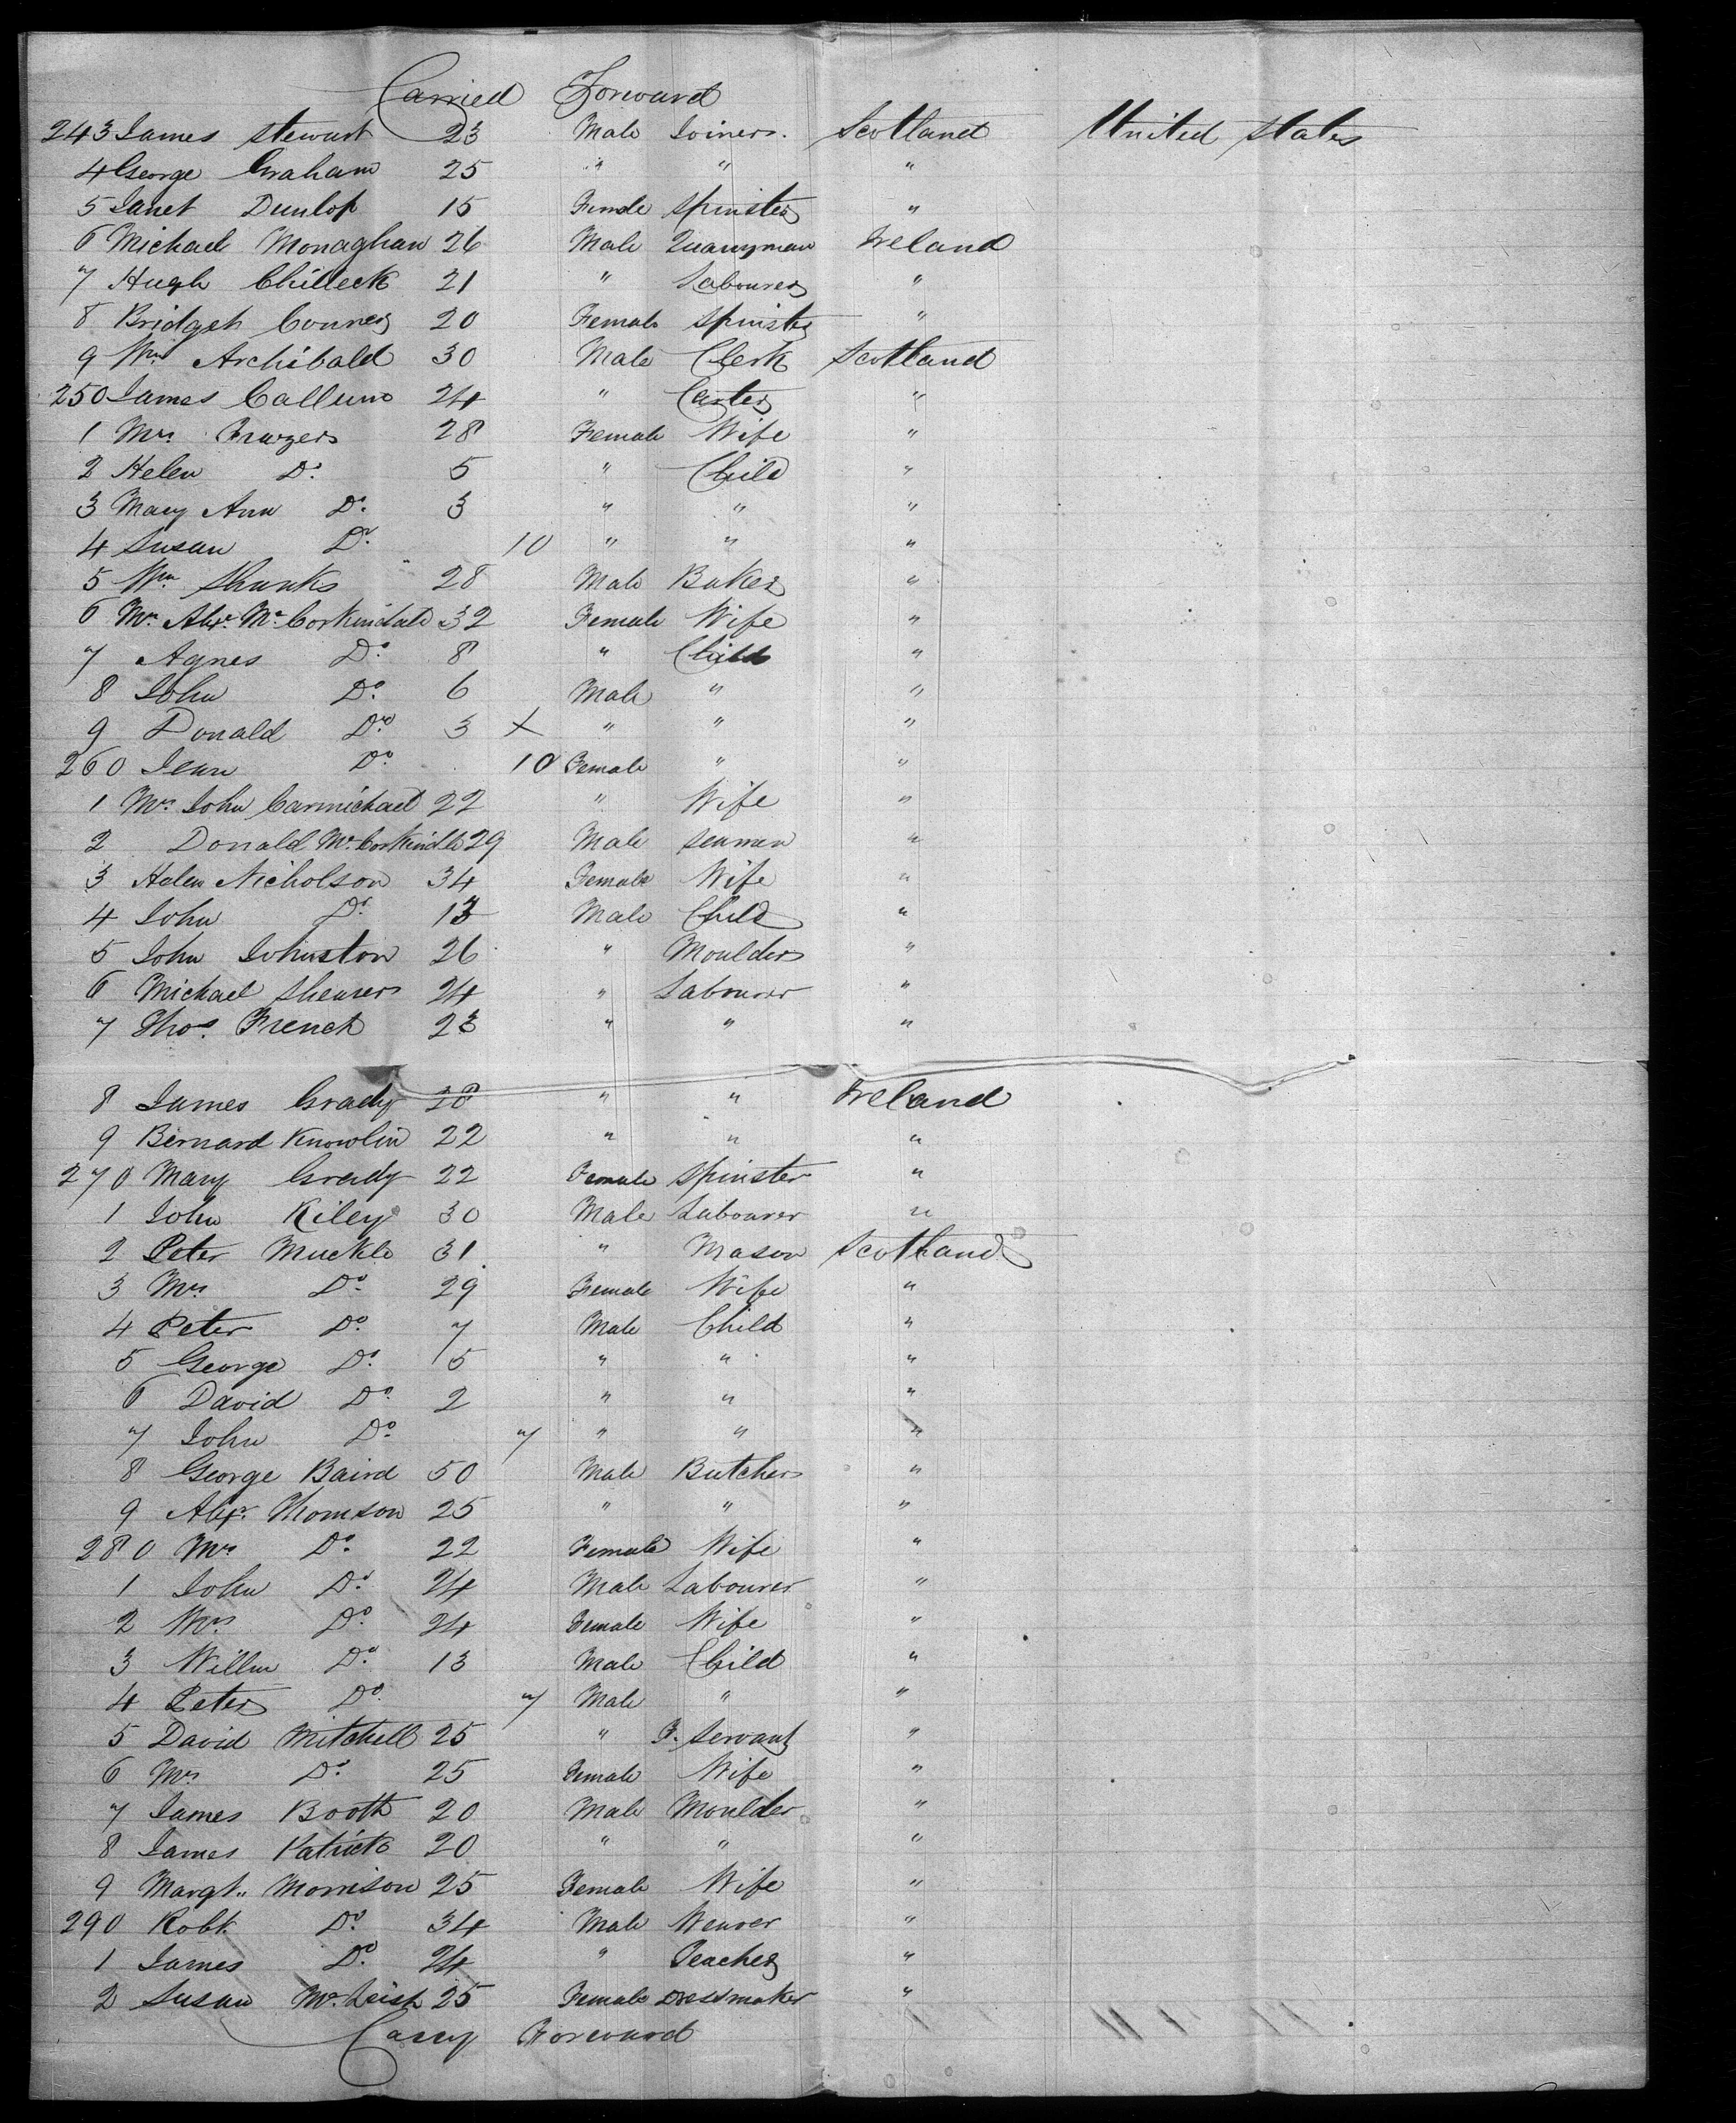 Carried Forward
243 James Stewart 23 Male Joiner Scotland United States
4 George Graham 25 " " "
5 Janet Dunlop 15 Female Spinster "
6 Michael Monaghan 26 Male Quarryman Ireland
7 Hugh 21 " Labourer "
8 Bridget 20 Female Spinster "
9 Wm Archibald 30 Male Clerk Scotland
250 James Callum 24 " Carter "
1 Mrs Frazer 28 Female Wife "
2 Helen Do. 5 " Child "
3 Mary Ann Do. 3 " " "
4 Susan Do. 10 " " "
5 Wm Shanks 28 Male Baker "
6 Mrs Alexr. McCorkindale 32 Female Wife "
7 Agnes Do. 8 " Child "
8 John Do. 6 Male " "
9 Donald Do. 3 X " " "
260 Jean Do. 10 Female " "
1 Mrs John Carmichael 22 " Wife "
2 Donald McCorkindle 29 Male Seaman "
3 Helen Nicholson 34 Female Wife "
4 John Do. 13 Male Child "
5 John Johnston 26 " Moulder "
6 Michael Shearer 24 " Labourer "
7 Thos. French 23 " " "
8 James Grady 28 " " Ireland
9 Bernard Knowlin 22 " " "
270 Mary Grady 22 Female Spinster "
1 John Kiley 30 Male Labourer "
2 Peter Muckle 31 " Mason Scotland
3 Mrs Do. 29 Female Wife "
4 Peter Do. 7 Male Child "
5 George Do. 5 " " "
6 David Do. 2 " " "
7 John Do. 7 " " "
8 George Baird 50 Male Butcher "
9 Alexr. Thomson 25 " " "
280 Mrs Do. 22 Female Wife "
1 John Do. 24 Male Labourer "
2 Mrs Do. 24 Female Wife "
3 Willm Do. 13 Male Child "
4 Peter Do. 7 Male " "
5 David Mitchell 25 " F. Servant "
6 Mrs Do. 25 Female Wife "
7 James Booth 20 Male Moulder "
8 James Patrick 20 " " "
9 Margt. Morrison 25 Female Wife "
290 Robt. Do. 34 Male Weaver "
1 James Do. 24 " Teacher "
2 Susan McLeish 25 Female Dressmaker "
Carry Forward